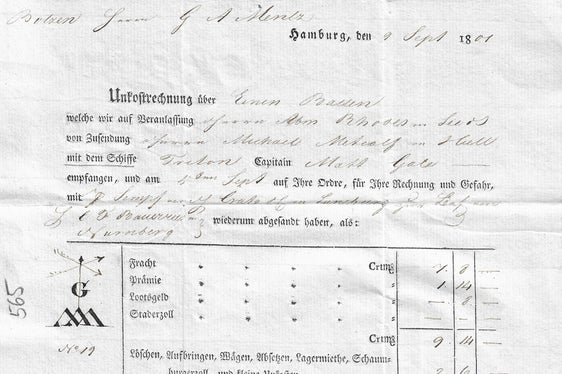 Botzen Herrn G A Mentz
Hamburg, den 9 Sept 1801
Unkostrechnung über Einen Ballen
welche wir auf Veranlassung Herrn Abm Rhodes in Leeds
von Zusendung Herrn Michael Metcalf in Hull
mit dem Schiffe Triton Capitain Matt Gale
empfangen, und am Sept auf Ihre Ordre, für Ihre Rechnung und Gefahr,
mit in Lüneburg zur
wiederum abgesandt haben, als:
Nürnberg
Fracht " " " " Crtm 7 8 —
Prämie " " " " " 1 14 —
Lootsgeld " " " " — 8 —
Staderzoll " " " "
Crtm 9 14 —
G
No 19
565
Löschen, Aufbringen, Wägen, Absetzen, Lagermiethe, Schauen-
burgerzoll, und kleine Unkosten